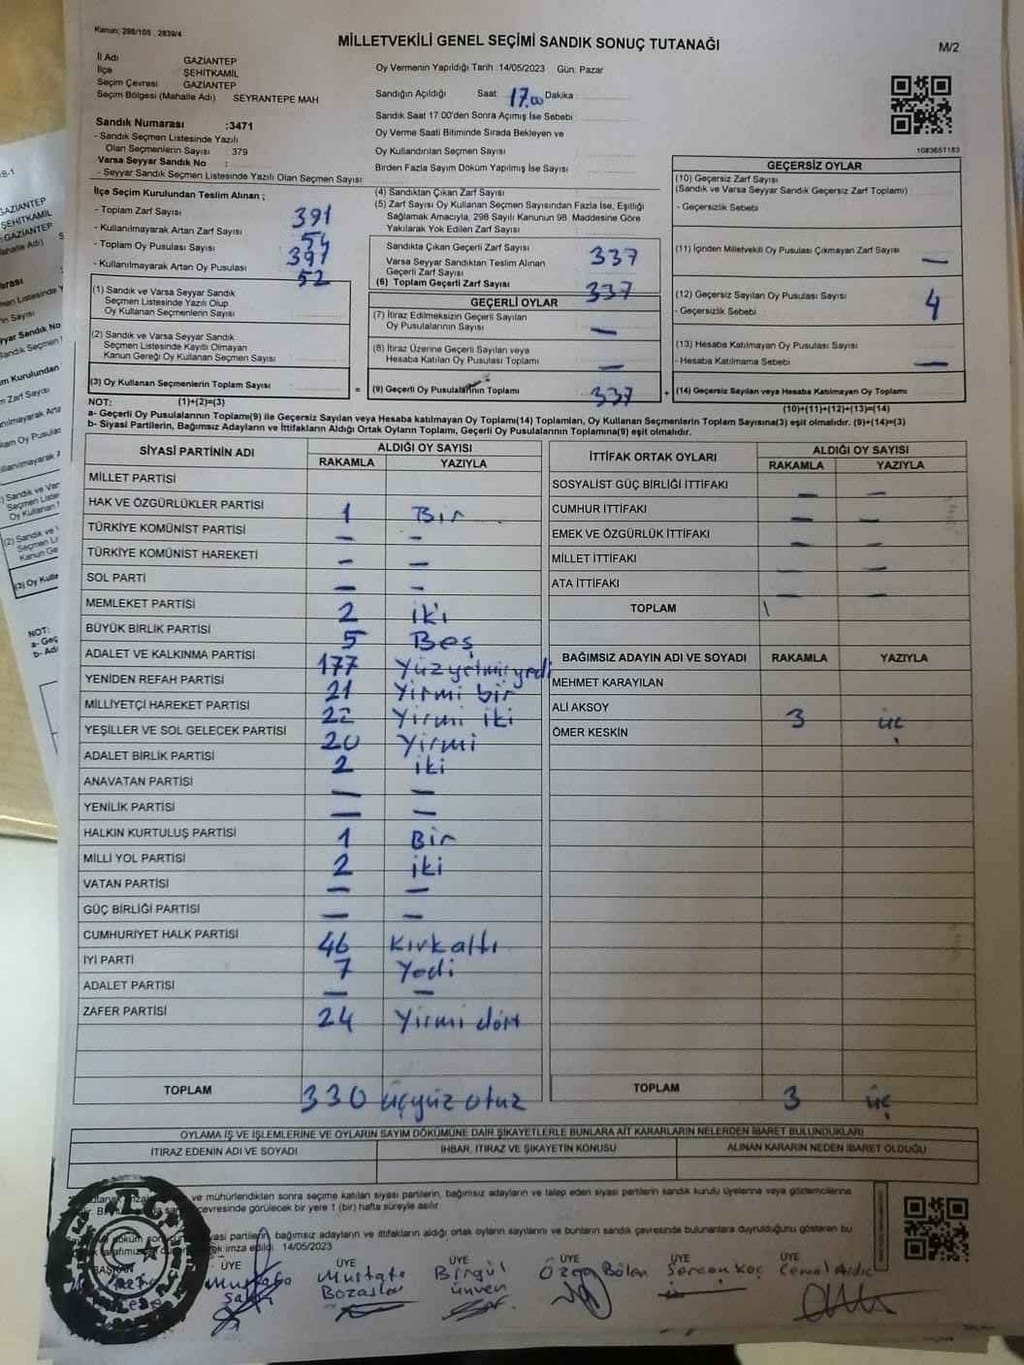 Kanun; 298/105 , 2839/4
MİLLETVEKİLİ GENEL SEÇİMİ SANDIK SONUÇ TUTANAĞI
M/2
İl Adı GAZİANTEP
İlçe ŞEHİTKAMİL
Seçim Çevresi GAZİANTEP
Seçim Bölgesi (Mahalle Adı) SEYRANTEPE MAH
Oy Vermenin Yapıldığı Tarih :14/05/2023 Gün: Pazar
Sandığın Açıldığı Saat 17.00 Dakika
Sandık Saat 17:00'den Sonra Açımış İse Sebebi
Oy Verme Saati Bitiminde Sırada Bekleyen ve
Oy Kullandırılan Seçmen Sayısı
Birden Fazla Sayım Döküm Yapılmış İse Sayısı
1083651183
Sandık Numarası :3471
- Sandık Seçmen Listesinde Yazılı
Olan Seçmenlerin Sayısı : 379
Varsa Seyyar Sandık No :
- Seyyar Sandık Seçmen Listesinde Yazılı Olan Seçmen Sayısı:
İlçe Seçim Kurulundan Teslim Alınan ;
- Toplam Zarf Sayısı 391
- Kullanılmayarak Artan Zarf Sayısı 54
- Toplam Oy Pusulası Sayısı 391
- Kullanılmayarak Artan Oy Pusulası 52
(1) Sandık ve Varsa Seyyar Sandık
Seçmen Listesinde Yazılı Olup
Oy Kullanan Seçmenlerin Sayısı
(2) Sandık ve Varsa Seyyar Sandık
Seçmen Listesinde Kayıtlı Olmayan
Kanun Gereği Oy Kullanan Seçmen Sayısı
(3) Oy Kullanan Seçmenlerin Toplam Sayısı
(4) Sandıktan Çıkan Zarf Sayısı
(5) Zarf Sayısı Oy Kullanan Seçmen Sayısından Fazla İse, Eşitliği
Sağlamak Amacıyla, 298 Sayılı Kanunun 98. Maddesine Göre
Yakılarak Yok Edilen Zarf Sayısı
Sandıkta Çıkan Geçerli Zarf Sayısı 337
Varsa Seyyar Sandıktan Teslim Alınan
Geçerli Zarf Sayısı
(6) Toplam Geçerli Zarf Sayısı 337
GEÇERLİ OYLAR
(7) İtiraz Edilmeksizin Geçerli Sayılan
Oy Pusulalarının Sayısı —
(8) İtiraz Üzerine Geçerli Sayılan veya
Hesaba Katılan Oy Pusulası Toplamı —
= (9) Geçerli Oy Pusulalarının Toplamı 337 +
GEÇERSİZ OYLAR
(10) Geçersiz Zarf Sayısı
(Sandık ve Varsa Seyyar Sandık Geçersiz Zarf Toplamı)
- Geçersizlik Sebebi
(11) İçinden Milletvekili Oy Pusulası Çıkmayan Zarf Sayısı —
(12) Geçersiz Sayılan Oy Pusulası Sayısı 4
- Geçersizlik Sebebi
(13) Hesaba Katılmayan Oy Pusulası Sayısı
- Hesaba Katılmama Sebebi —
(14) Geçersiz Sayılan veya Hesaba Katılmayan Oy Toplamı
NOT: (1)+(2)=(3)
(10)+(11)+(12)+(13)=(14)
a- Geçerli Oy Pusulalarının Toplamı(9) ile Geçersiz Sayılan veya Hesaba katılmayan Oy Toplamı(14) Toplamları, Oy Kullanan Seçmenlerin Toplam Sayısına(3) eşit olmalıdır. (9)+(14)=(3)
b- Siyasi Partilerin, Bağımsız Adayların ve İttifakların Aldığı Ortak Oyların Toplamı, Geçerli Oy Pusulalarının Toplamına(9) eşit olmalıdır.
SİYASİ PARTİNİN ADI ALDIĞI OY SAYISI
RAKAMLA YAZIYLA
MİLLET PARTİSİ
HAK VE ÖZGÜRLÜKLER PARTİSİ 1 Bir
TÜRKİYE KOMÜNİST PARTİSİ — —
TÜRKİYE KOMÜNİST HAREKETİ — —
SOL PARTİ — —
MEMLEKET PARTİSİ 2 iki
BÜYÜK BİRLİK PARTİSİ 5 Beş
ADALET VE KALKINMA PARTİSİ 177 Yüzyetmişyedi
YENİDEN REFAH PARTİSİ 21 Yirmi bir
MİLLİYETÇİ HAREKET PARTİSİ 22 Yirmi iki
YEŞİLLER VE SOL GELECEK PARTİSİ 20 Yirmi
ADALET BİRLİK PARTİSİ 2 iki
ANAVATAN PARTİSİ — —
YENİLİK PARTİSİ — —
HALKIN KURTULUŞ PARTİSİ 1 Bir
MİLLİ YOL PARTİSİ 2 iki
VATAN PARTİSİ — —
GÜÇ BİRLİĞİ PARTİSİ — —
CUMHURİYET HALK PARTİSİ 46 Kırkaltı
İYİ PARTİ 7 Yedi
ADALET PARTİSİ — —
ZAFER PARTİSİ 24 Yirmi dört
TOPLAM 330 üçyüz otuz
İTTİFAK ORTAK OYLARI ALDIĞI OY SAYISI
RAKAMLA YAZIYLA
SOSYALİST GÜÇ BİRLİĞİ İTTİFAKI — —
CUMHUR İTTİFAKI — —
EMEK VE ÖZGÜRLÜK İTTİFAKI — —
MİLLET İTTİFAKI — —
ATA İTTİFAKI — —
TOPLAM \
BAĞIMSIZ ADAYIN ADI VE SOYADI RAKAMLA YAZIYLA
MEHMET KARAYILAN
ALİ AKSOY 3 üç
ÖMER KESKİN
TOPLAM 3 üç
OYLAMA İŞ VE İŞLEMLERİNE VE OYLARIN SAYIM DÖKÜMÜNE DAİR ŞİKAYETLERLE BUNLARA AİT KARARLARIN NELERDEN İBARET BULUNDUKLARI
İTİRAZ EDENİN ADI VE SOYADI İHBAR, İTİRAZ VE ŞİKAYETİN KONUSU ALINAN KARARIN NEDEN İBARET OLDUĞU
ve mühürlendikten sonra seçime katılan siyasi partilerin, bağımsız adayların ve talep eden siyasi partilerin sandık kurulu üyelerine veya gözlemcilerine
çevresinde görülecek bir yere 1 (bir) hafta süreyle asılır.
partilerin, bağımsız adayların ve ittifakların aldığı ortak oyların sayılarını ve bunların sandık çevresinde bulunanlara duyrulduğunu gösteren bu
imza edildi. 14/05/2023
BAŞKAN ÜYE ÜYE ÜYE ÜYE ÜYE ÜYE
Mustafa Mustafa Birgül Özge Bölen Sercan Koç Cemal
Bozaslan ünven